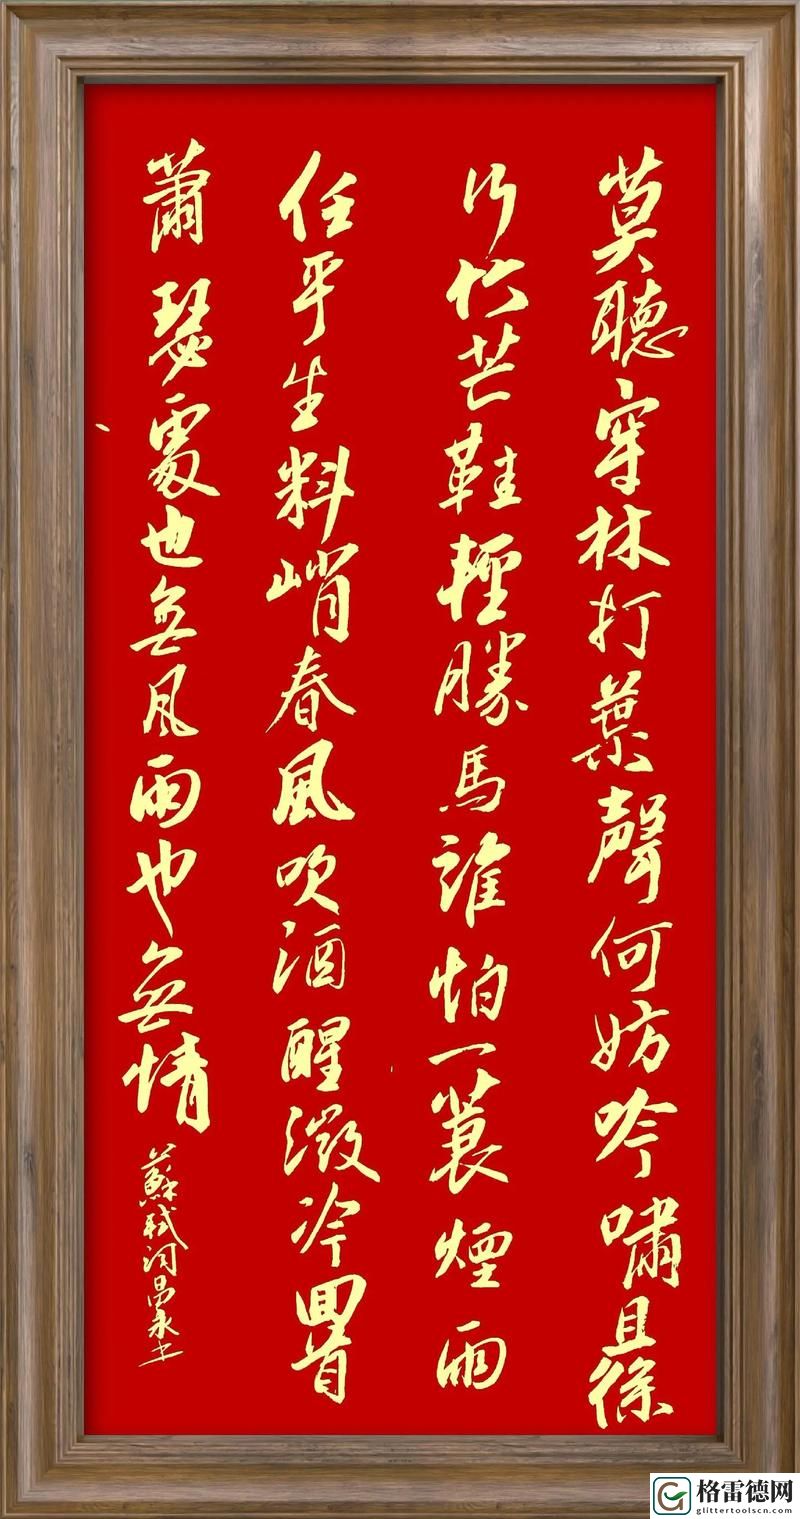 莫聽穿林打葉聲何妨吟嘯且徐
行竹芒鞋輕勝馬誰怕一蓑煙雨
任平生料峭春風吹酒醒微冷回首
蕭瑟處也無風雨也無情
蘇軾詞昌永书
格雷德网
glittertoolscn.com